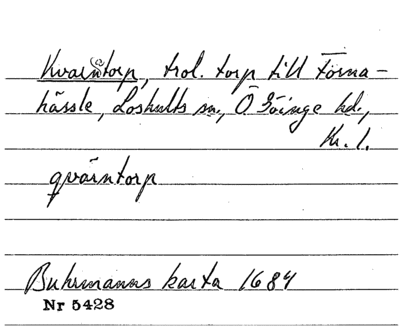 Kvarntorp, trol. torp till Törna-
hässle, Loshults sn, Ö Göinge hd.,
Kr. l.
qvärntorp
Buhrmanns karta 1684
Nr 5428